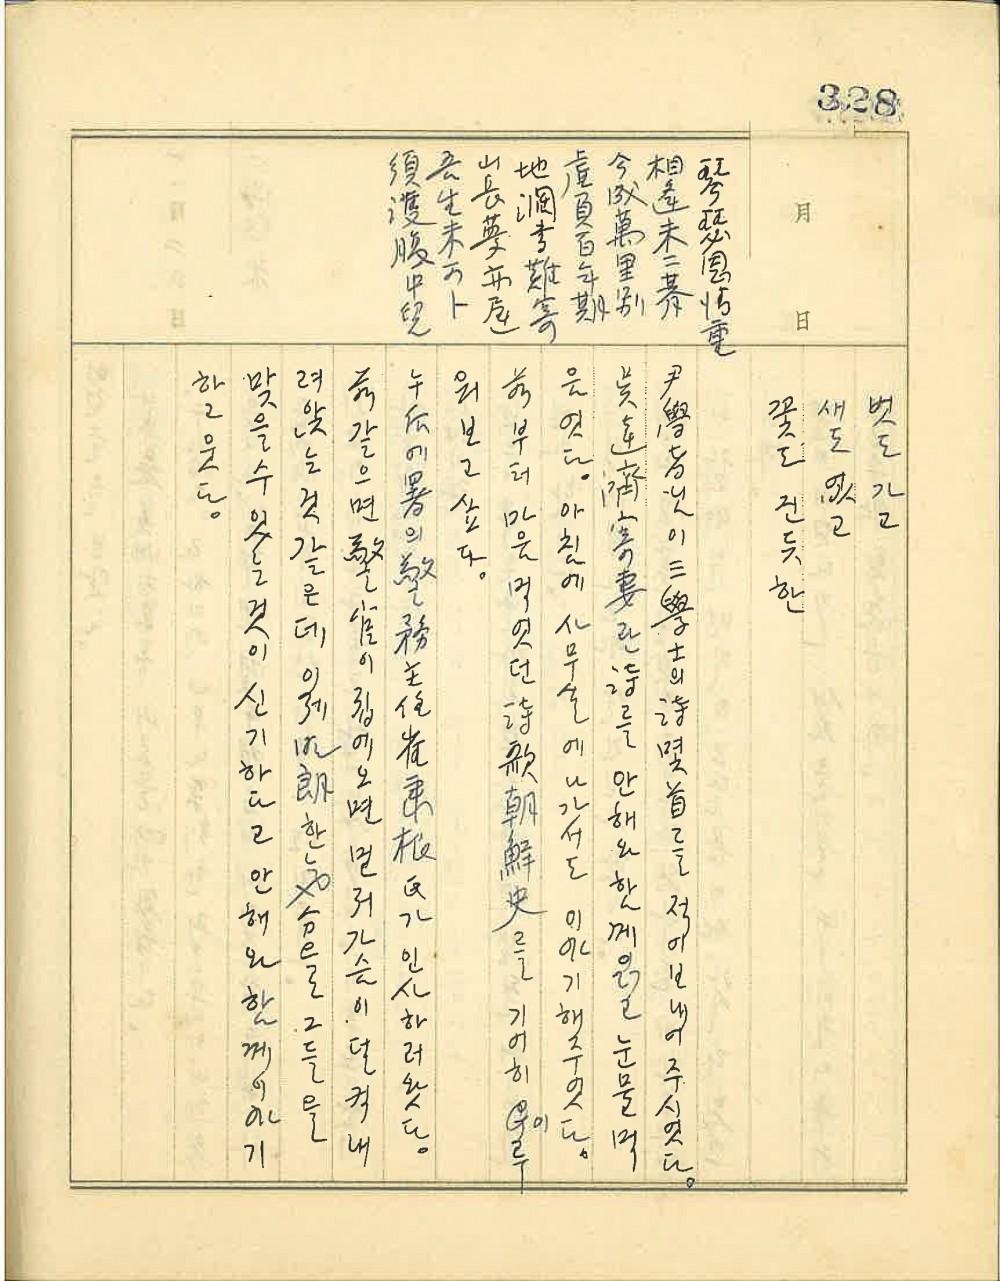 328
月
日
琴瑟恩情重
相逢未二朞
今成萬里別
虛負百年期
地濶書難寄
山長夢亦遲
吾生未可卜
須護腹中兒
벗도 가고
새도 없고
꽃도 진듯한
尹學者님이 三學士의 詩 몇首를 적어보내어 주시엿다。
吳達濟 寄妻란 詩를 안해와 함께 읽고 눈물 먹
음엿다。아침에 사무실에 나가서도 이야기해주엿다。
前부터 마음먹엇던 詩歌朝鮮史를 기어히 이루
워보고 싶다。
午后에 署의 警務主任 崔東根氏가 인사하러 왓다。
前 같으면 警官이 집에 오면 먼저 가슴이 덜컥 내
려앉는것 같은데 이제 明朗한 氣分으로 그들을
맞을수 잇는것이 신기하다고 안해와 함께 이야기
하고 웃다。